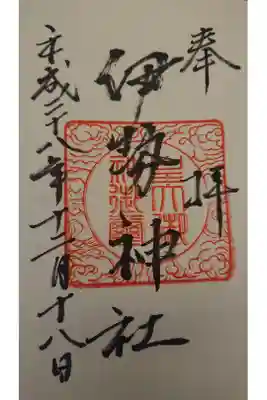 奉拝
伊勢神社
平成二十八年十二月十八日